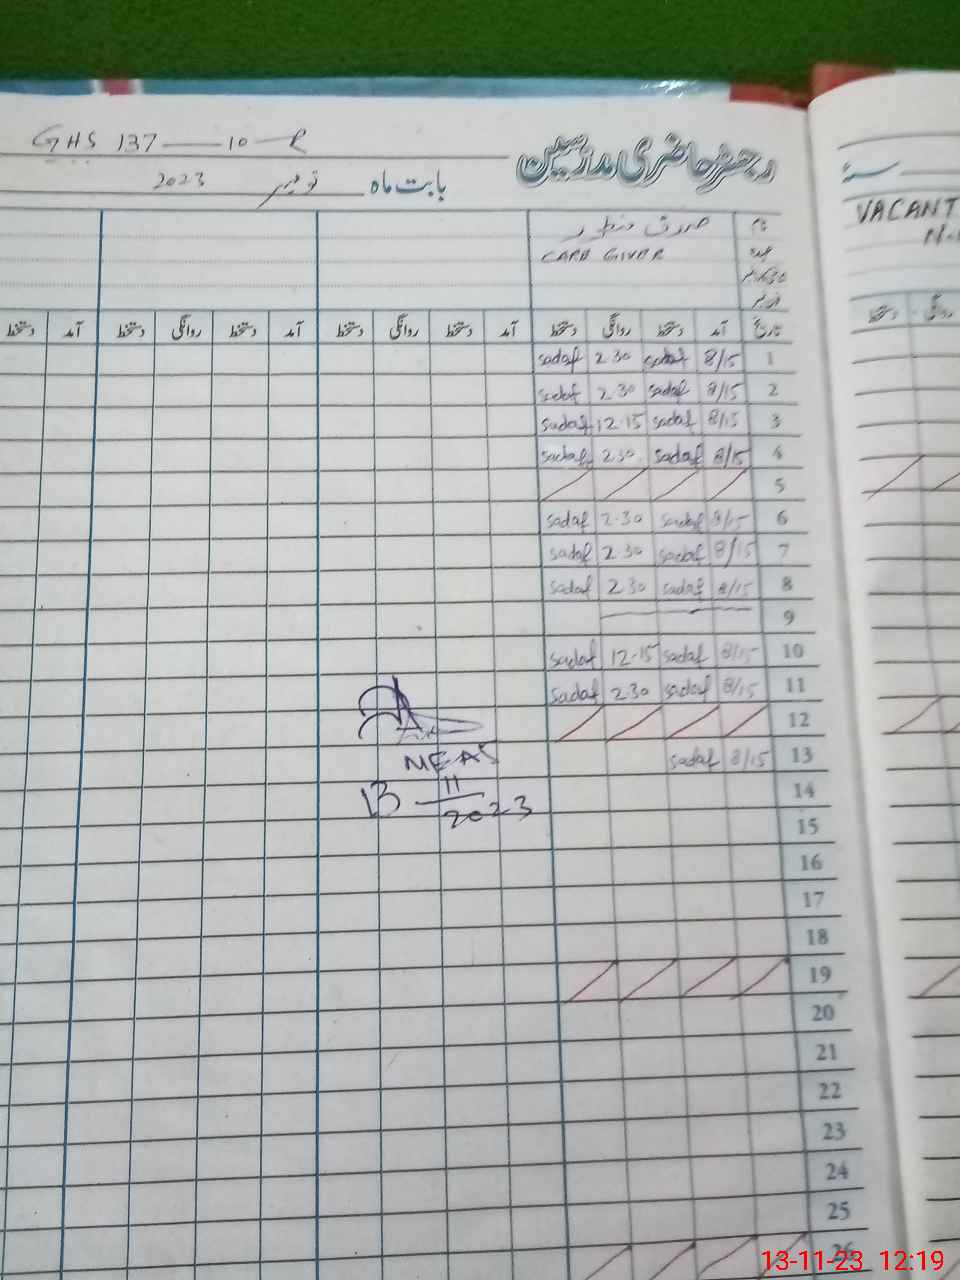 GHS 137 — 10-R
رجسٹر حاضری مدرسین
بابت ماہ نومبر 2023
نام صدف منظور
عہدہ CARE GIVER
تاریخ آمد دستخط روانگی دستخط آمد دستخط روانگی دستخط آمد دستخط روانگی دستخط آمد دستخط
1 8/15 sadaf 2.30 sadaf
2 8/15 sadaf 2.30 sadaf
3 8/15 sadaf 12.15 sadaf
4 8/15 sadaf 2.30 sadaf
5
6 8/15 sadaf 2.30 sadaf
7 8/15 sadaf 2.30 sadaf
8 8/15 sadaf 2.30 sadaf
9
10 8/15 sadaf 12.15 sadaf
11 8/15 sadaf 2.30 sadaf
12
13 8/15 sadaf
14
15
16
17
18
19
20
21
22
23
24
25
26
MEA
13-11-2023
سنہ
VACANT
روانگی دستخط
13-11-23 12:19